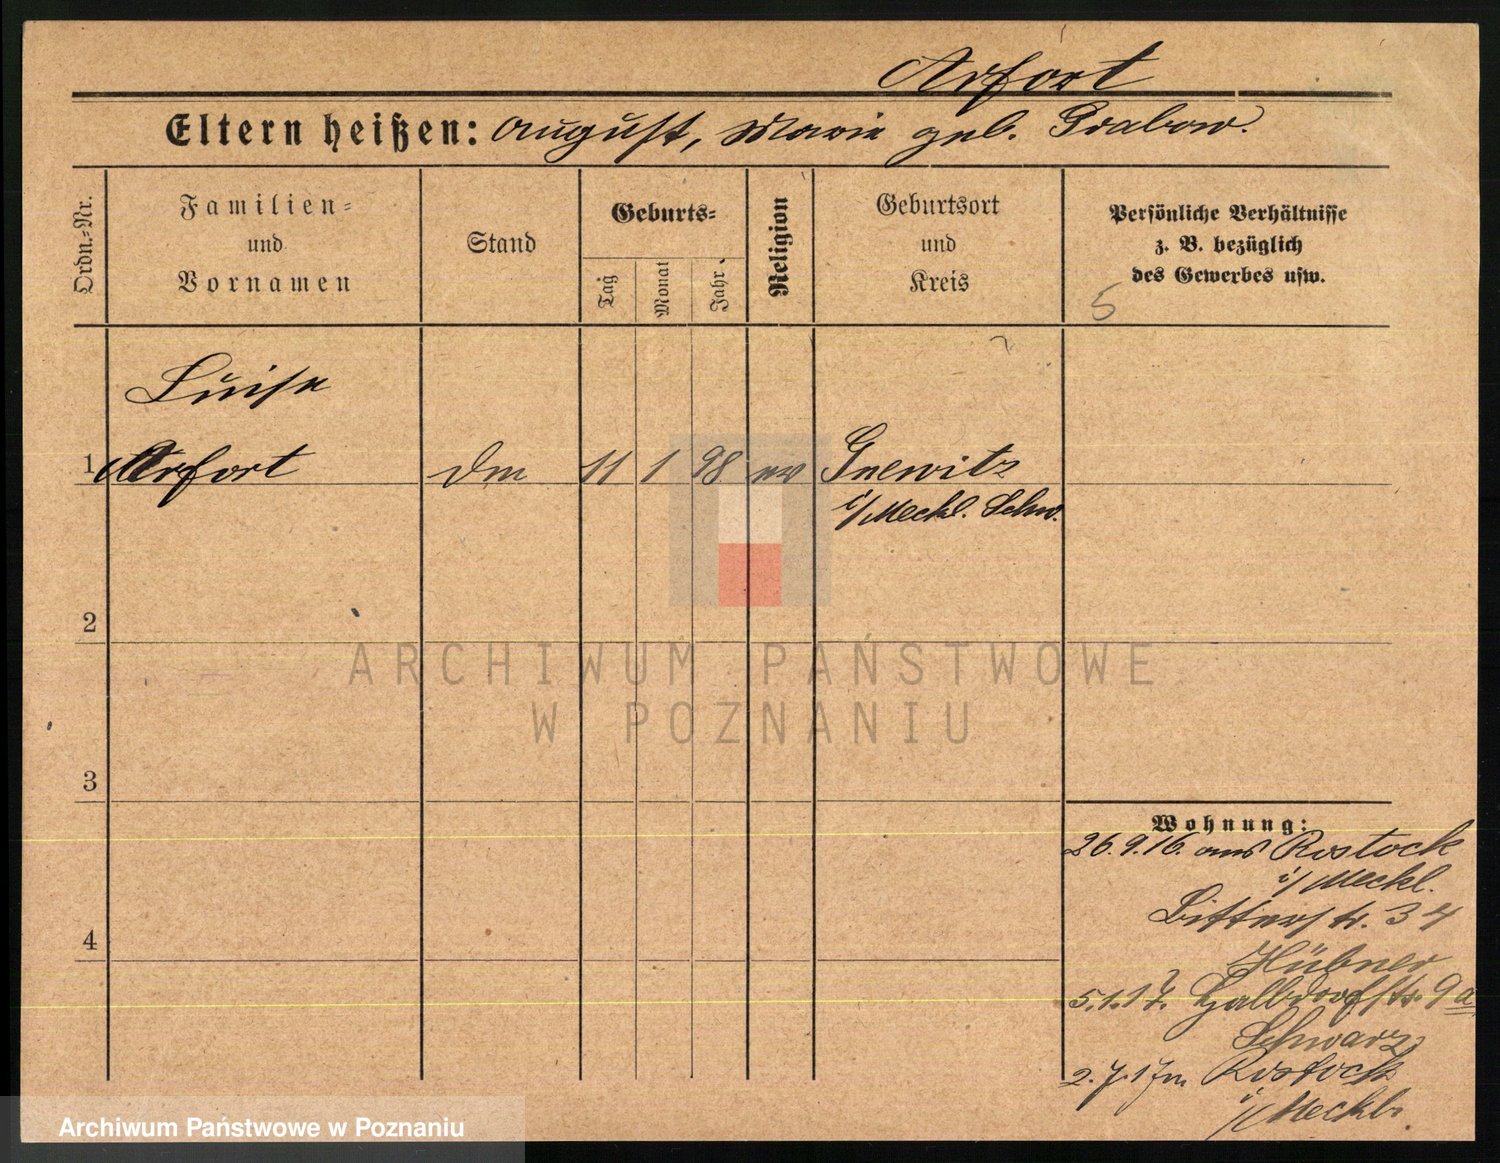 Arfort
Eltern heißen: August, Marie geb. Grabow.
Ordn.-Nr.
Familien-
und
Vornamen
Stand
Geburts-
Tag
Monat
Jahr
Religion
Geburtsort
und
Kreis
Persönliche Verhältnisse
z. B. bezüglich
des Gewerbes usw.
5
Luise
1 Arfort 11 1 98 ev Gnewitz
i/Meckl. Schw.
2
3
4
Wohnung:
26.9.16. aus Rostock
i/Meckl.
Bitterstr. 34
Hübner
5.1.17. Halbdorfstr. 9a
Schwarz
2.7.17 n Rostock
i/Meckb.
ARCHIWUM PAŃSTWOWE
W POZNANIU
Archiwum Państwowe w Poznaniu